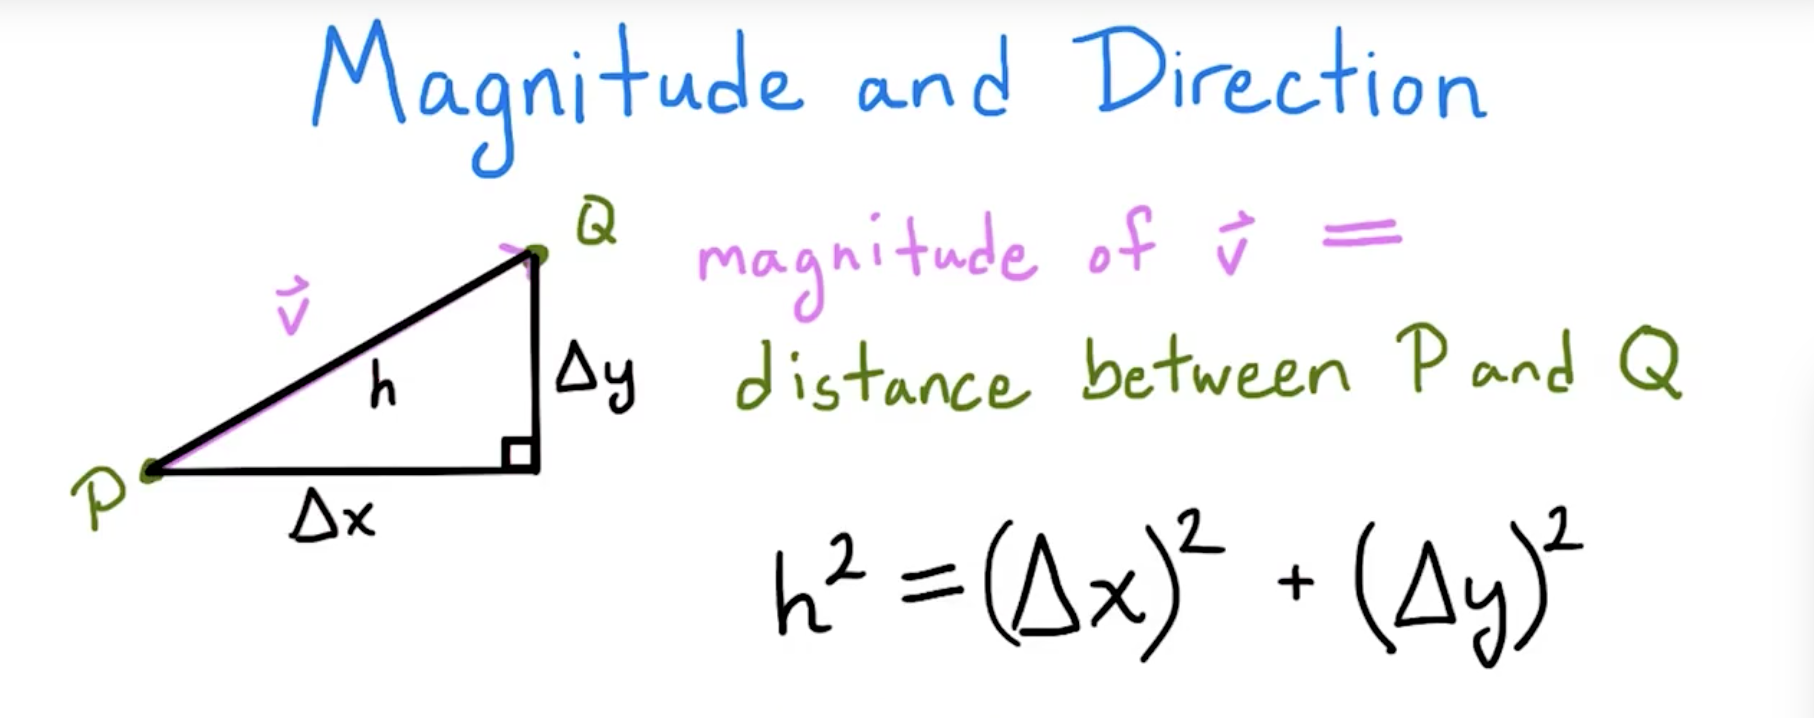 Magnitude and Direction
Q
v⃗
magnitude of v⃗ =
h
Δy
distance between P and Q
P
Δx
h² = (Δx)² + (Δy)²